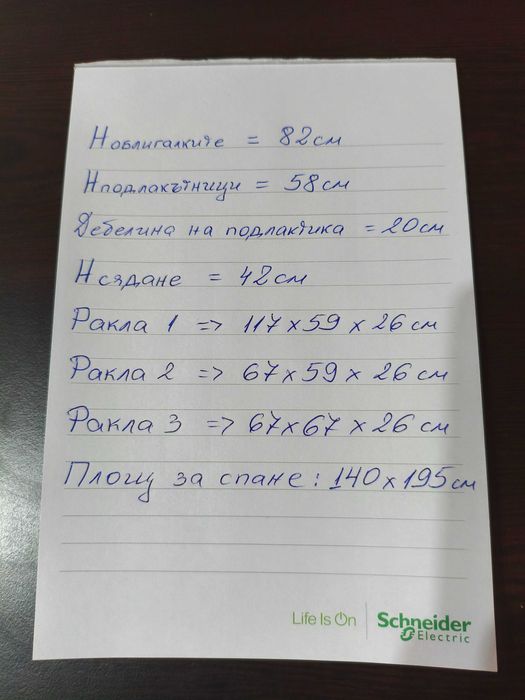 Hоблигалките = 82см
Hподлакътници = 58см
Дебелина на подлактика = 20см
Hсядане = 42см
Ракла 1 => 117x59x26см
Ракла 2 => 67x59x26см
Ракла 3 => 67x67x26см
Площ за спане: 140x195см
Life Is On | Schneider Electric